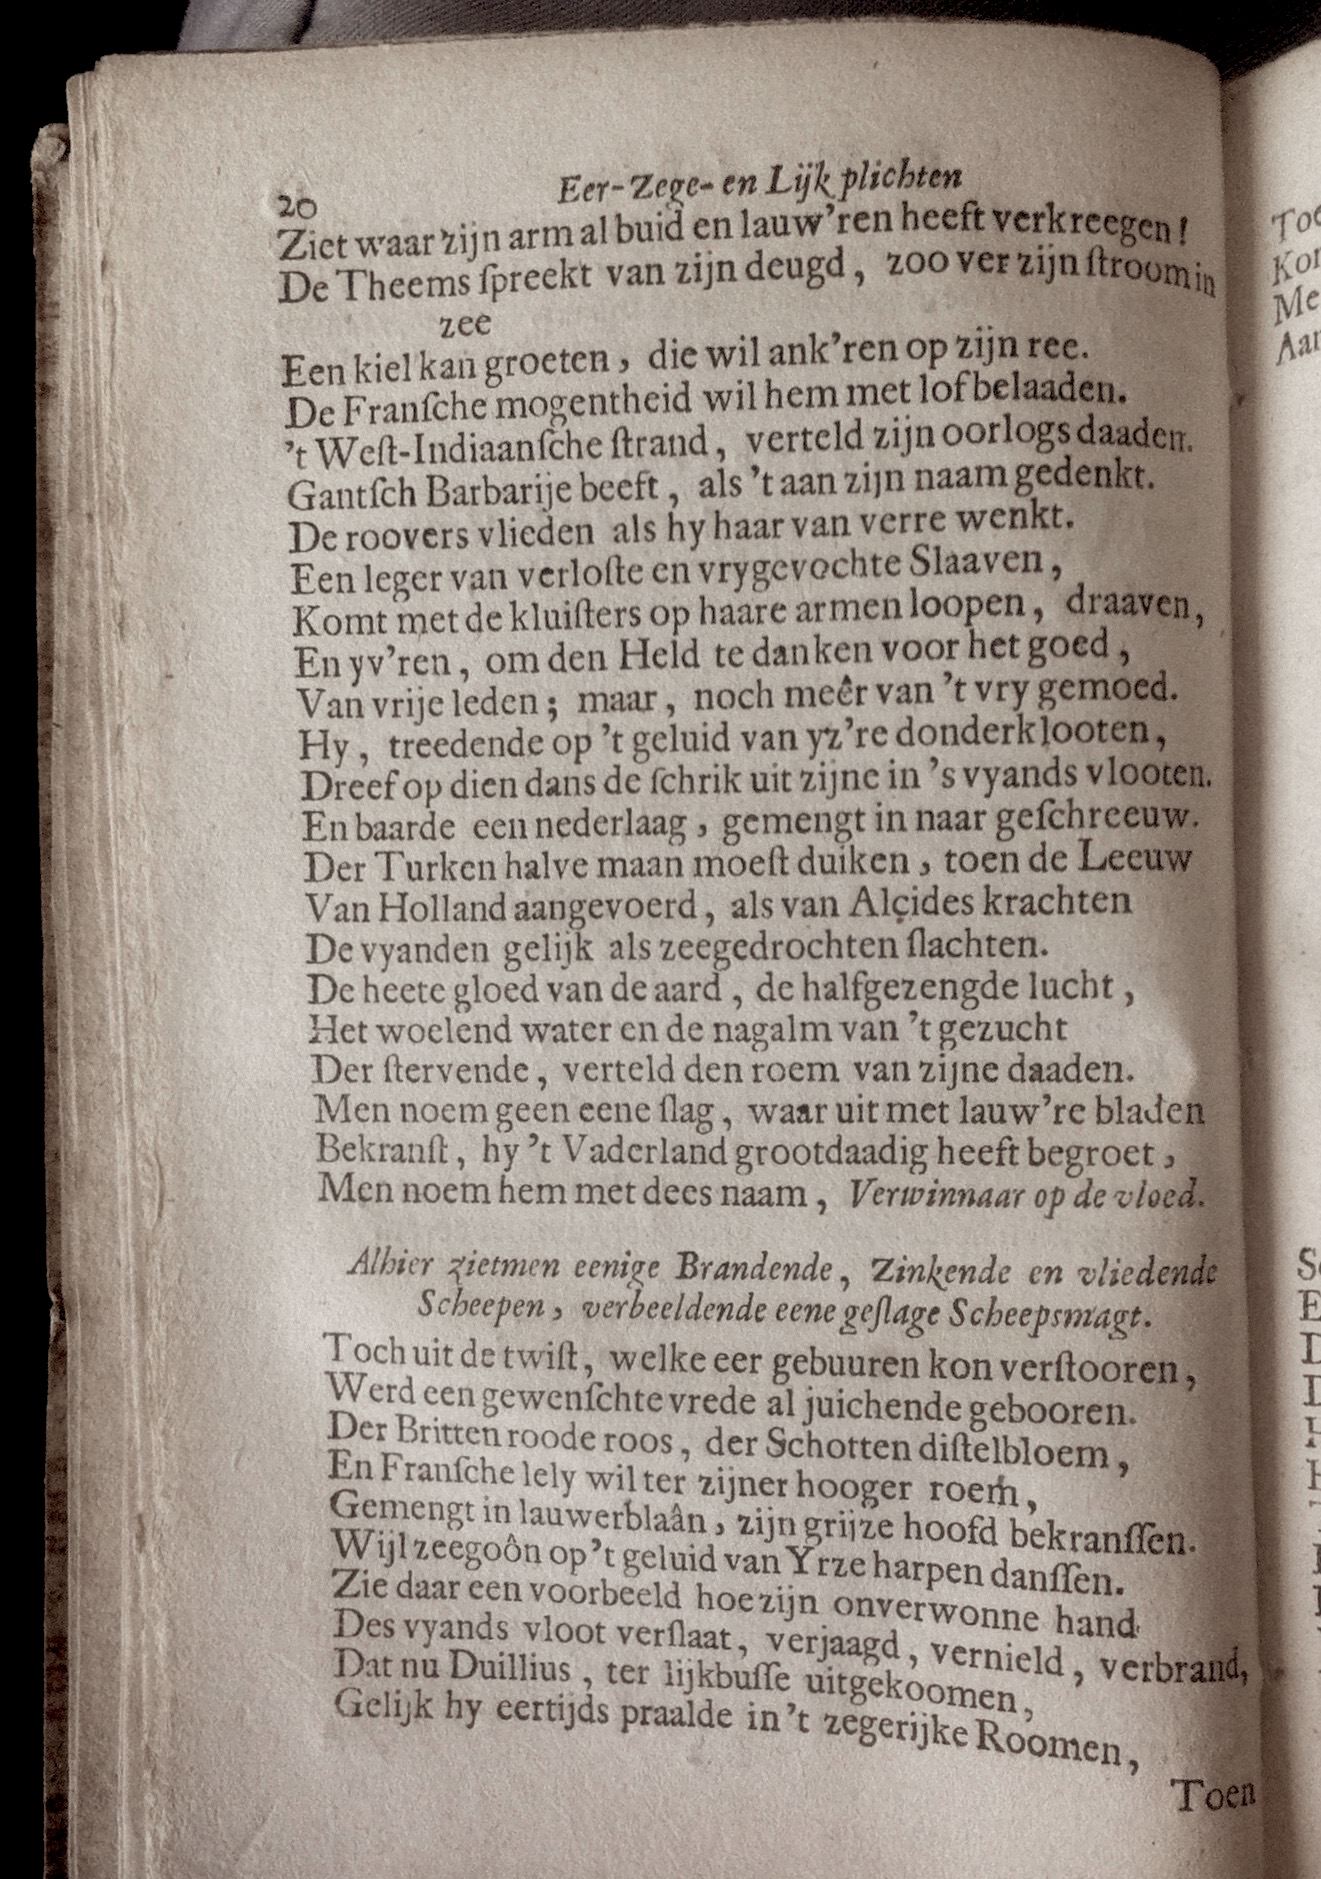 20
Eer-Zege- en Lijkplichten
Ziet waar zijn arm al buid en lauw'ren heeft verkreegen!
De Theems ſpreekt van zijn deugd, zoo ver zijn ſtroom in
zee
Een kiel kan groeten, die wil ank'ren op zijn ree.
De Franſche mogentheid wil hem met lof belaaden.
't Weſt-Indiaanſche ſtrand, verteld zijn oorlogs daaden.
Gantſch Barbarije beeft, als 't aan zijn naam gedenkt.
De roovers vlieden als hy haar van verre wenkt.
Een leger van verloſte en vrygevochte Slaaven,
Komt met de kluiſters op haare armen loopen, draaven,
En yv'ren, om den Held te danken voor het goed,
Van vrije leden; maar, noch meêr van 't vry gemoed.
Hy, treedende op 't geluid van yz're donderklooten,
Dreef op dien dans de ſchrik uit zijne in 's vyands vlooten.
En baarde een nederlaag, gemengt in naar geſchreeuw.
Der Turken halve maan moeſt duiken, toen de Leeuw
Van Holland aangevoerd, als van Alçides krachten
De vyanden gelijk als zeegedrochten ſlachten.
De heete gloed van de aard, de halfgezengde lucht,
Het woelend water en de nagalm van 't gezucht
Der ſtervende, verteld den roem van zijne daaden.
Men noem geen eene ſlag, waar uit met lauw're bladen
Bekranſt, hy 't Vaderland grootdaadig heeft begroet,
Men noem hem met dees naam, Verwinnaar op de vloed.
Alhier zietmen eenige Brandende, Zinkende en vliedende
Scheepen, verbeeldende eene geſlage Scheepsmagt.
Toch uit de twiſt, welke eer gebuuren kon verſtooren,
Werd een gewenſchte vrede al juichende gebooren.
Der Britten roode roos, der Schotten diſtelbloem,
En Franſche lely wil ter zijner hooger roem,
Gemengt in lauwerblaân, zijn grijze hoofd bekranſſen.
Wijl zeegoôn op 't geluid van Yrze harpen danſſen.
Zie daar een voorbeeld hoe zijn onverwonne hand
Des vyands vloot verſlaat, verjaagd, vernield, verbrand,
Dat nu Duillius, ter lijkbuſſe uitgekoomen,
Gelijk hy eertijds praalde in 't zegerijke Roomen,
Toen